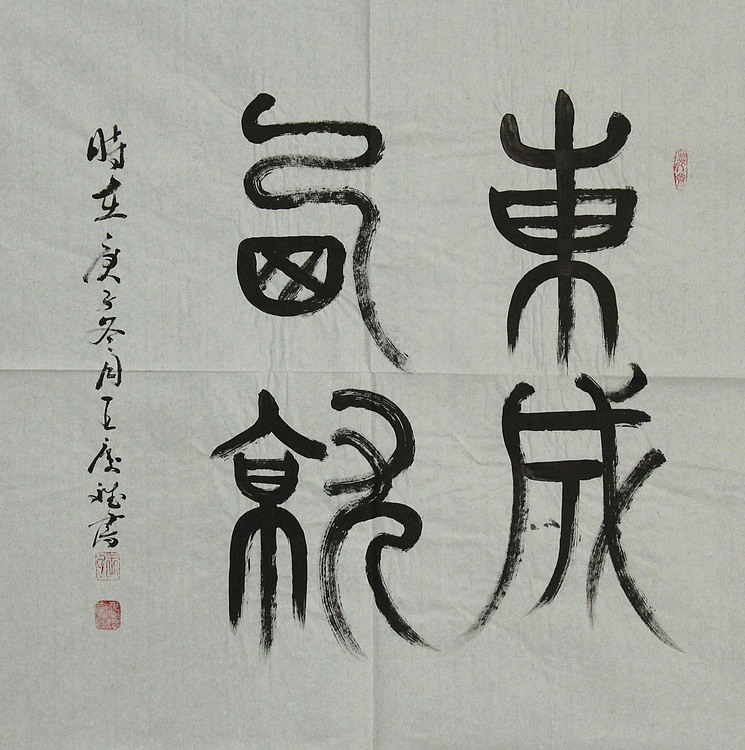 東成
西就
時在庚子冬月王慶書